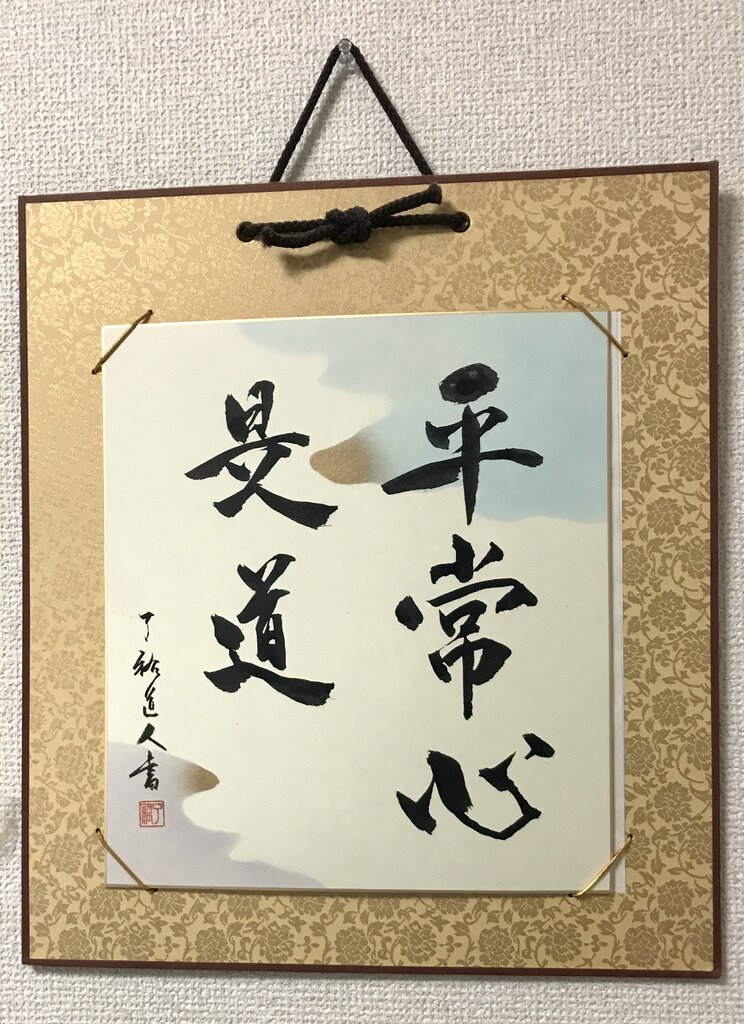 平常心
是道
了祐道人書